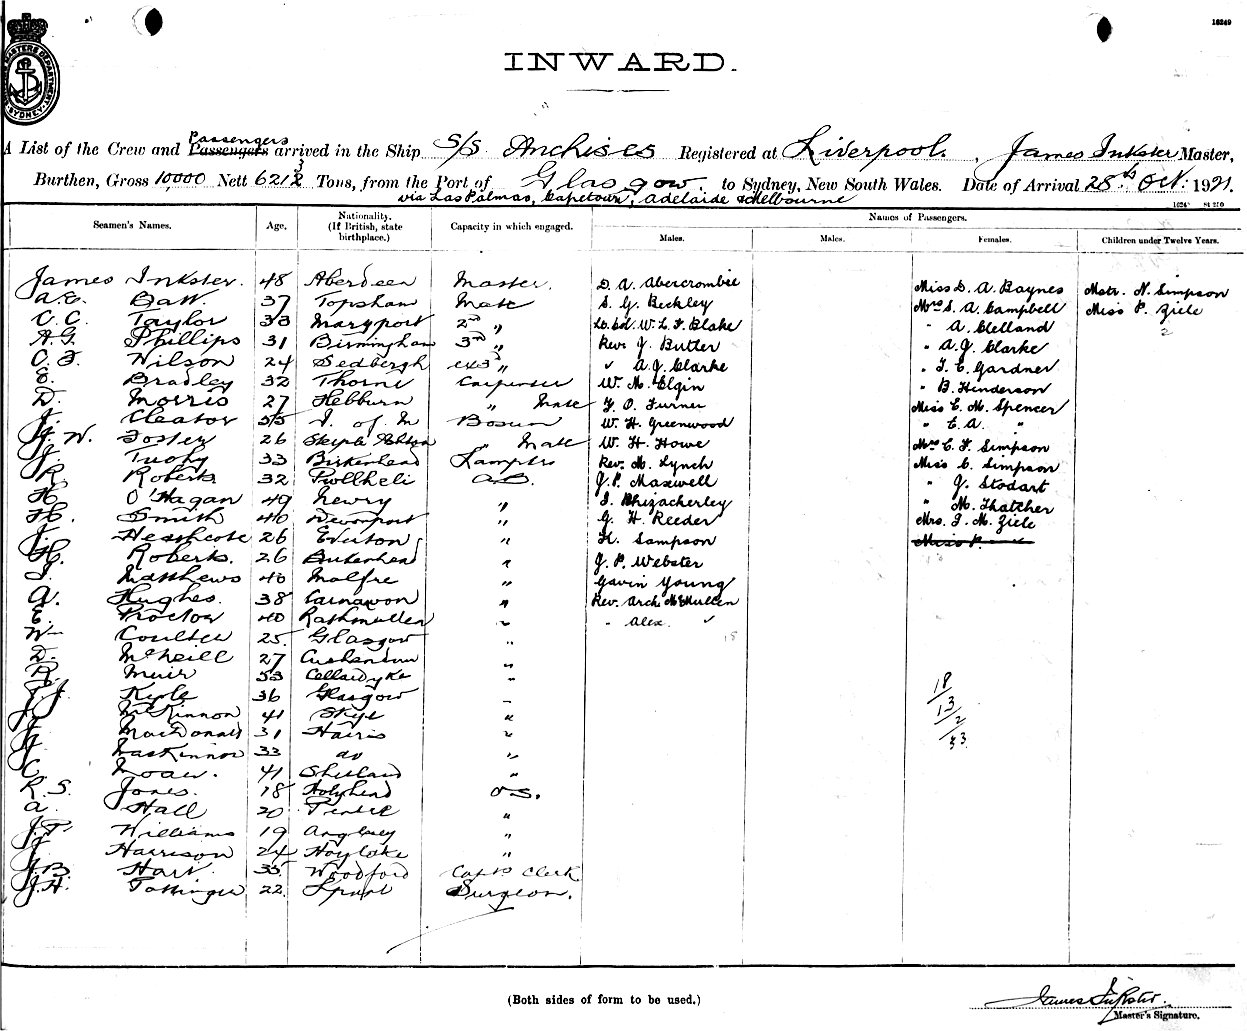 16249
INWARD.
A List of the Crew and Passengers Passengers arrived in the Ship S/S Anchises Registered at Liverpool. , James Inkster Master,
Burthen, Gross 10,000 Nett 6212 3 Tons, from the Port of Glasgow. to Sydney, New South Wales. Date of Arrival 28th Oct: 1921.
via Las Palmas, Capetown, Adelaide & Melbourne
Seamen's Names. Age. Nationality. (If British, state birthplace.) Capacity in which engaged. Names of Passengers.
Males. Males. Females. Children under Twelve Years.
James Inkster. 48 Aberdeen Master. D. A. Abercrombie Miss D. A. Baynes Mstr. N. Simpson
37 Topsham Mate S. G. Bickley Mrs S. A. Campbell Miss P. Ziele
C. C. Taylor 33 Maryport 2nd " Lt. Col. W. L. F. Blake " A. Clelland 2
A. G. Phillips 31 Birmingham 3rd " Rev. J. Butter " A. J. Clarke
C. F. Wilson 24 Sedbergh ex 3rd " " A. J. Clarke " J. C. Gardner
E. Bradley 32 Thorne Carpenter W. M. Elgin " B. Henderson
D. Morris 27 Hebburn " Mate F. O. Furner Miss E. M. Spencer
J. Cleator 55 I. of M Bosun W. H. Greenwood " E. A. "
J. W. Foster 26 " Mate W. H. Howe Mrs C. F. Simpson
J. Tuohy 33 Birkenhead Lamptr. Rev. M. Lynch Miss C. Simpson
R. Roberts 32 Pwllheli A.B. J. P. Maxwell " J. Stodart
H. O'Hagan 49 Newry " J. Rhizackerley " M. Thatcher
H. Smith 46 Devonport " G. H. Reeder Mrs. J. M. Ziele
J. Heathcote 26 Everton " H. Sampson Miss P.
H. Roberts. 26 Birkenhead " J. P. Webster
J. Matthews 40 " Gavin Young
A. Hughes. 38 Carnavon " Rev. Arch. McMullen
E. Proctor 40 Rathmullen " " Alex. "
W Coulter 25 Glasgow " 18
D. McNeill 27 Cushendun "
R. Muir 53 Cellardyke "
J. J. Kyle 36 Glasgow " 18
J. McKinnon 41 Skye " 13
J. MacDonald 31 Harris " 2
J. MacKinnon 33 do " 33
C. Moar. 41 Shetland "
R. S. Jones. 18 Holyhead O.S.
A. Hall 20 "
J. P. Williams 19 Anglesey "
J. Harrison 24 Hoylake "
J. B. Hart 35 Woodford Capts Clerk
J. H. 22 Surgeon.
(Both sides of form to be used.)
James Inkster.
Master's Signature.